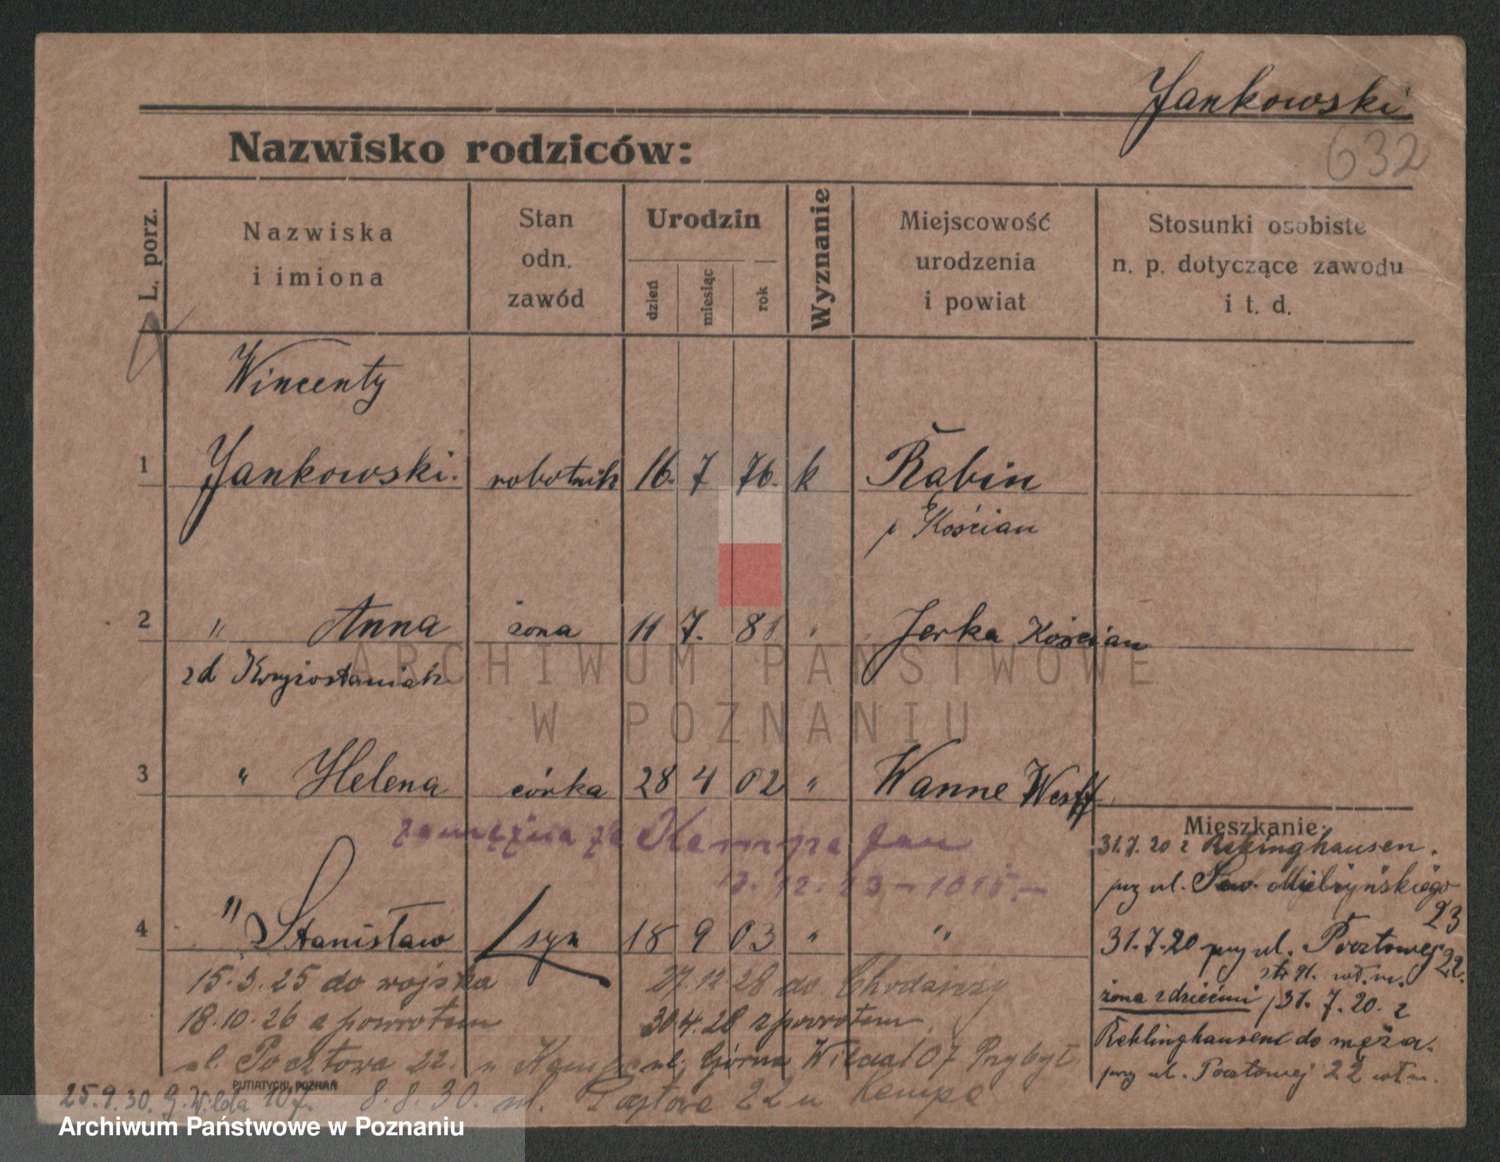 Jankowski
632
Nazwisko rodziców:
L. porz.
Nazwiska
i imiona
Stan
odn.
zawód
Urodzin
dzień
miesiąc
rok
Wyznanie
Miejscowość
urodzenia
i powiat
Stosunki osobiste
n. p. dotyczące zawodu
i t. d.
Wincenty
1 Jankowski. robotnik 16. 7 76. k Rąbiń
p Kościan
2 " Anna żona 11 7. 81 " Jerka Kościan
zd
3 " Helena córka 28 4 02 " Wanne Westf
zamężna za Kempa Jan
Mieszkanie:
31.7.20 z Reklinghausen.
przy ul. Sew. Mielżyńskiego
23
4 " Stanisław syn 18 9 03 " "
31.7.20 przy ul. Pocztowej 22.
żona z dziećmi 31.7.20. z
Reklinghausen do męża.
przy ul. Pocztowej 22 wł. m.
15.3.25 do wojska
18.10.26 z powrotem
ul. Pocztowa 22. u Kempa
27.12.28 do
30.4.28 z powrotem
ul. Górna Wilda 107 Przybył
PUTIATYCKI, POZNAŃ
25.9.30. G. Wilda 107. 8.8.30. ul. Pocztowa 22 u Kempa
ARCHIWUM PAŃSTWOWE
W POZNANIU
Archiwum Państwowe w Poznaniu